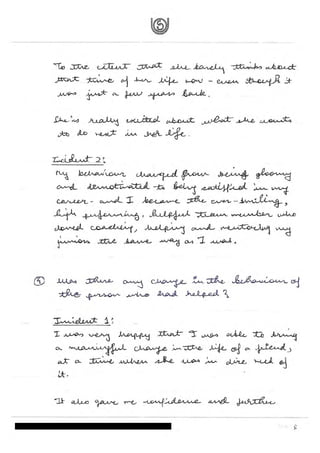 To the extent that she barely thinks about
that time of her life now - even though it
was just a few years back.
She's really excited about what she wants
to do next in her life.
Incident 2:
My behaviour changed from being gloomy
and demotivated to being satisfied in my
career - and I became the ever-smiling,
high performing, helpful team member who
loved coaching, helping and mentoring my
juniors the same way as I was.
Was there any change in the behaviour of
the person who had helped?
Incident 1:
I was very happy that I was able to bring
a meaningful change in the life of a friend,
at a time when she was in dire need of
it.
It also gave me confidence and further